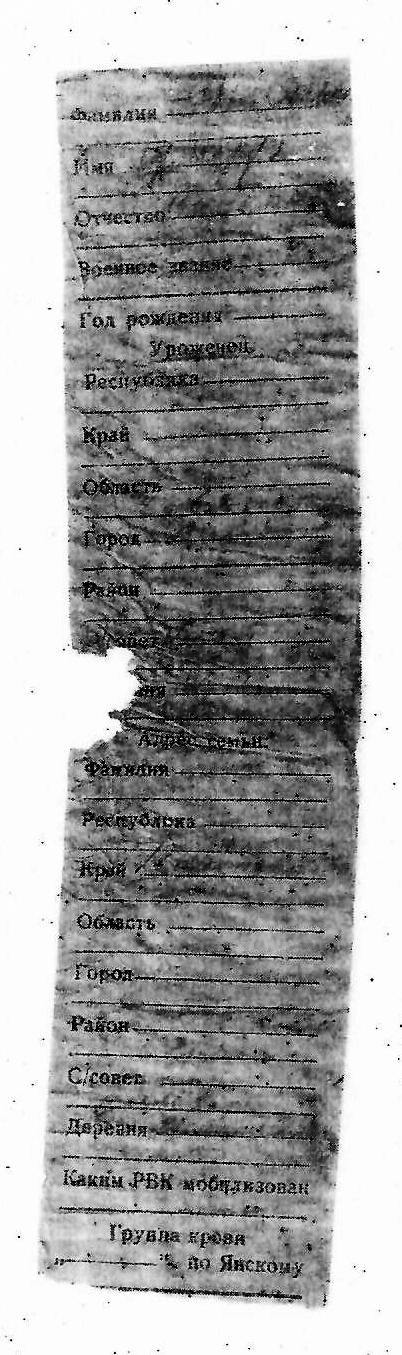 Фамилия
Имя
Отчество
Военное звание
Год рождения
Уроженец
Республика
Край
Область
Город
Район
Адрес семьи
Фамилия
Республика
Край
Область
Город
Район
С/совет
Деревня
Каким РВК мобилизован
Группа крови
„ “ по Янскому